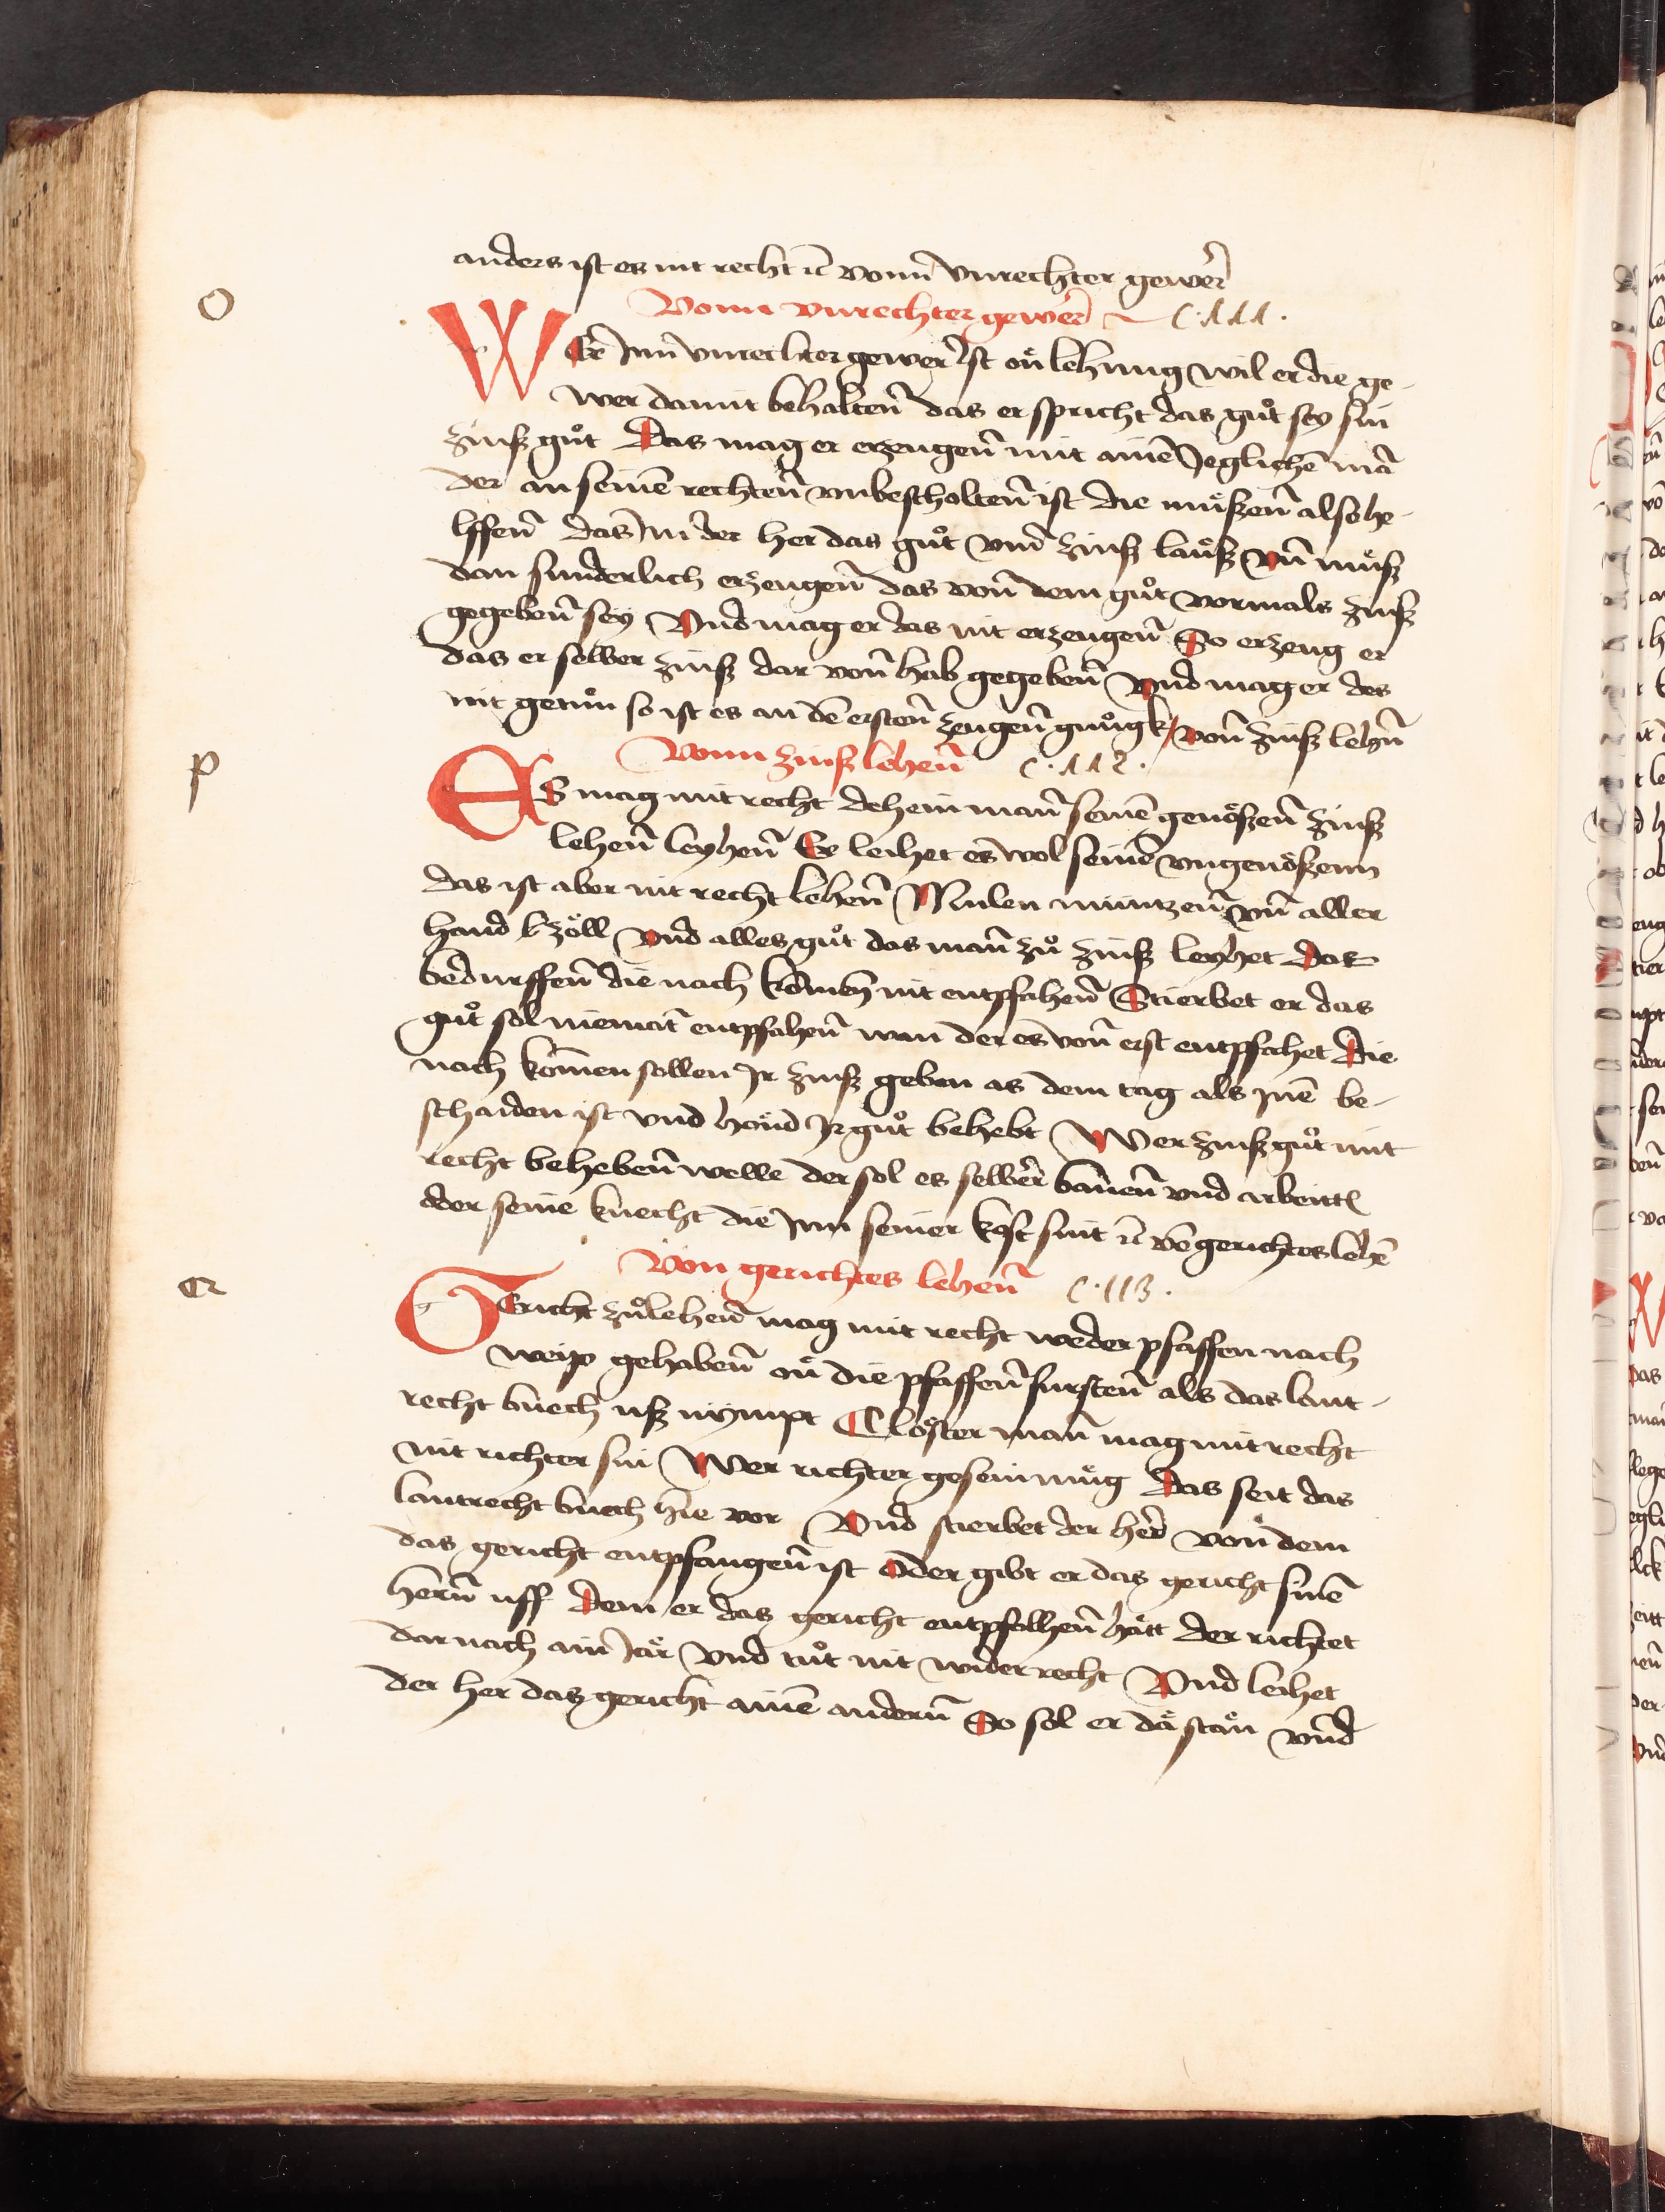 anders ist es nit recht ꝛc vonn̄ vnrechter gewer̄
O
Vonn vnrechter gewer̄ C·111·
WEr̄ Inn̄ vnrechter gewer Ist on̈ lehnung wil er die ge-
wer damit behalten̄ das er spricht das gůt sey sin
zinsz gůt Das mag er erzeugen̄ mit ainē Jeglichē mā
der an seinē rechten̄ vnbescholten̄ ist die mu̇szen̄ also he-
lffen̄ das Im der her das gůt vmb zinsz lausz vn̄ musz
dan sunderlich erzeugen̄ das von̄ dem gůt vormals zinsz
gegeben̄ sey Vnd mag er das nit erzeugen̄ So erzeug er
das er selber zinsz dar von̄ hab gegeben̄ Vnd mag er des
nit getun̊ so ist es an dē ersten̄ zeugen̄ gnůgk / von̄ zinsz lehn̄
P
Vonn zinsz lehen̄ C·112·
ES mag mit recht dehein man̄ seinē genöszen̄ zinsz
lehen̄ leyhen̄ Er leihet es wol seinē vngenöszenn
das ist aber nit recht lehen̄ Mulen müntzen̄ vn̄ aller
hand k zöll vnd alles gůt das man̄ zů zinsz leyhet Das
bedurffen̄ die nach komen̄ nit entpfahen̄ Stierbet er das
gůt sol niemāt entpfahen̄ wan der es von̄ erst entpfahet Die
nach komen̄ sollen Ir zinsz geben as dem tag als Inē be-
schaiden ist vnd hond Ir gůt behebt Wer zinsz gůt mit
recht beheben̄ welle der sol es selber̄ bauen̄ vnd arbeitt
oder seine knecht die Inn seiner kost sint ꝛc vō gerichtes lehē
Von gerichtes lehen̄ C·113·
Q
GEricht zů lehen̄ mag mit recht weder pfaffen nach
weip gehaben̄ on̈ die pfaffen̄ fursten̄ als das lant-
recht buech usz nympt Closter man̄ mag mit recht
nit richter sin Wer richter gesein mug Das seit das
lantrecht buech hie vor Vnd stierbet der her̄ von̄ dem
das gericht entpfangen̄ ist Oder gibt er das gericht sinē
herrn̄ uff Dem er das gericht entpfolhen̄ hatt der richtet
dar nach ain Jar vnd tůt nit wider recht Vnd leihet
der her das gericht ainē andern̄ So sol er da stan̄ vnd